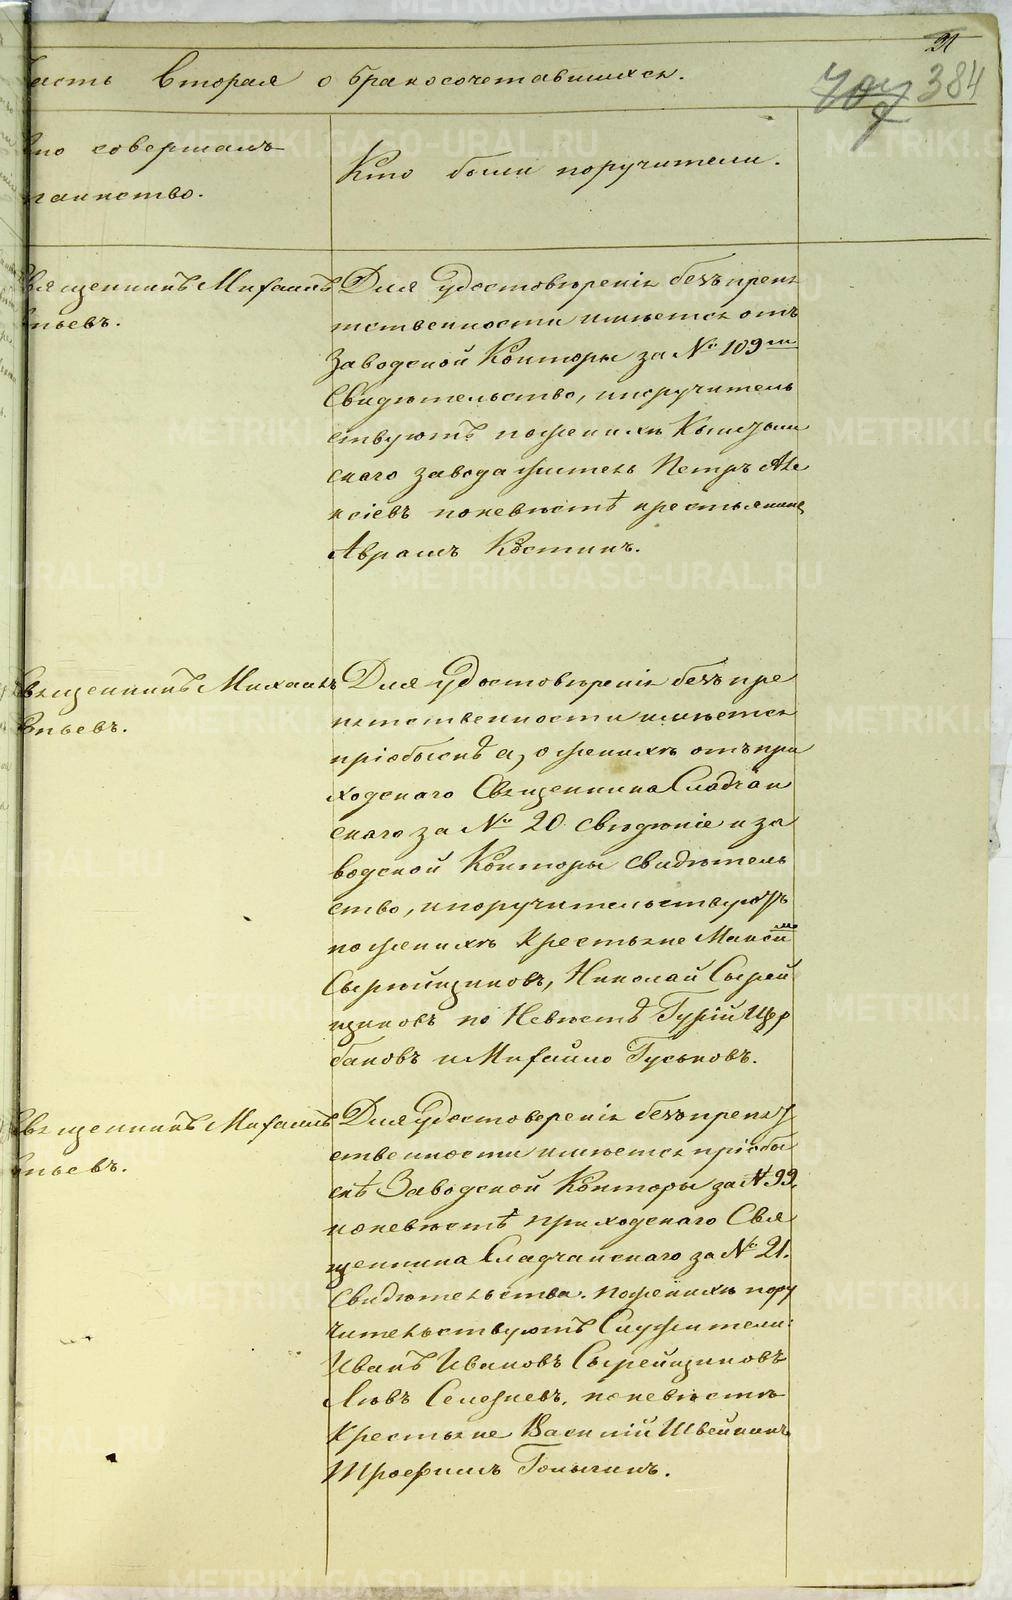 31
384
Часть вторая о бракосочетавшихся.
Кто совершалъ
таинство.
Кто были поручители.
Священникъ Михаилъ
Для удостовѣренія безъпрепя
тственности имѣется отъ
Заводской Конторы за № 109м
Свидѣтельство, ипоручитель
ствуютъ поженихѣ
скаго завода житель Петръ Але
ксіевъ поневѣстѣ крестьянинъ
Аврамъ Костинъ.
Священникъ Михаилъ
Для удостовѣренія безъпре
пятственности имѣется
пріобыскѣ а, о женихѣ отъпри
ходскаго Священника Сладчан
скаго за № 20 свѣдѣніе и за
водской Конторы свидѣтель
ство, ипоручительствуютъ
по женихѣ Крестьяне Максимъ
Сырейщиковъ, Николай Сырей
щиковъ по Невѣстѣ Гурій Щер
баковъ и Михайло Гуськовъ.
Священникъ Михаилъ
Для удостоверенія безъпрепят
ственности имѣется пріобы
скѣ Заводской Конторы за № 99,
поневѣстѣ приходскаго Свя
щенника Сладчанскаго за № 21.
Свидѣтельства. поженихѣ пору
чительствуютъ Служители:
Иванъ Ивановъ Сырейщиковъ
Львъ Селезневъ, поневѣстѣ
Крестьяне Василій Швейкинъ
Трофимъ
METRIKI.GASO-URAL.RU